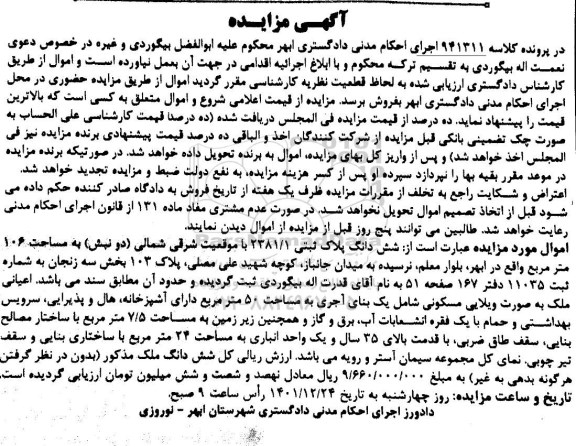 آگهـی مزایـده
در پرونده کلاسه ۹۴۱۳۱۱ اجرای احکام مدنی دادگستری ابهر محکوم علیه ابوالفضل بیگوردی و غیره در خصوص دعوی
نعمـت اله بیگوردی به تقسیـم ترکـه محکـوم و با ابلاغ اجرائیه اقدامی در جهت آن بعمل نیاورده است و اموال از طریق
کارشناس دادگستری ارزیابی شده به لحاظ قطعیت نظریه کارشناسی مقرر گردید اموال از طریق مزایده حضوری در محل
اجرای احکام مدنی دادگستری ابهر بفروش برسد. مزایده از قیمت اعلامی شروع و اموال متعلق به کسی است که بالاترین
قیمت را پیشنهاد نماید. ده درصد از قیمت مزایده فی المجلس دریافت شده (ده درصد قیمت کارشناسی علی الحساب به
صورت چک تضمینی بانکی قبل مزایده از شرکت کنندگان اخذ و الباقی ده درصد قیمت پیشنهادی برنده مزایده نیز فی
المجلس اخذ خواهد شد) و پس از واریز کل بهای مزایده، اموال به برنده تحویل داده خواهد شد. در صورتیکه برنده مزایده
در موعد مقرر بقیه بها را نپردازد سپرده او پس از کسر هزینه مزایده، به نفع دولت ضبط و مزایده تجدید خواهد شد.
اعتراض و شکایت راجع به تخلف از مقررات مزایده ظرف یک هفته از تاریخ فروش به دادگاه صادر کننده حکم داده می
شـود قبل از اتخاذ تصمیم اموال تحویل نخواهد شـد. در صورت عدم مشتری مفاد ماده ۱۳۱ از قانون اجرای احکام مدنی
رعایت خواهد شد. طالبین می توانند پنج روز قبل از مزایده از اموال دیدن نمایند.
اموال مورد مزایده عبارت است از: شش دانگ پلاک ثبتی ۲۳۸۱/۱ با موقعیت شرقی شمالی (دو نبش) به مساحت ۱۰۶
متر مربع واقع در ابهر، بلوار معلم، نرسیده به میدان جانباز، کوچه شهید علی مصلی، پلاک ۱۰۳ بخش سه زنجان به شماره
ثبت ۱۱۰۳۵ دفتر ۱۶۷ صفحه ۵۱ به نام آقای قدرت اله بیگوردی ثبت گردیده و حدود آن مطابق سند می باشد. اعیانی
ملک به صورت ویلایی مسکونی شامل یک بنای آجری به مساحت ۵۰ متر مربع دارای آشپزخانه، هال و پذیرایی، سرویس
بهداشتی و حمام با یک فقره انشعابات آب، برق و گاز و همچنین زیر زمین به مساحت ۷/۵ متر مربع با ساختار مصالح
بنایی، سقف طاق ضربی، با قدمت بالای ۳۵ سال و یک واحد انباری به مساحت ۲۴ متر مربع با ساختاری بنایی و سقف
تیر چوبی. نمای کل مجموعه سیمان آستر و رویه می باشد. ارزش ریالی کل شش دانگ ملک مذکور (بدون در نظر گرفتن
هرگونه بدهی به غیر) به مبلغ ۹/۶۶۰/۰۰۰/۰۰۰ ریال معادل نهصد و شصت و شش میلیون تومان ارزیابی گردیده است.
تاریخ و ساعت مزایده: روز چهارشنبه به تاریخ ۱۴۰۱/۱۲/۲۴ رأس ساعت ۹ صبح.
دادورز اجرای احکام مدنی دادگستری شهرستان ابهر - نوروزی